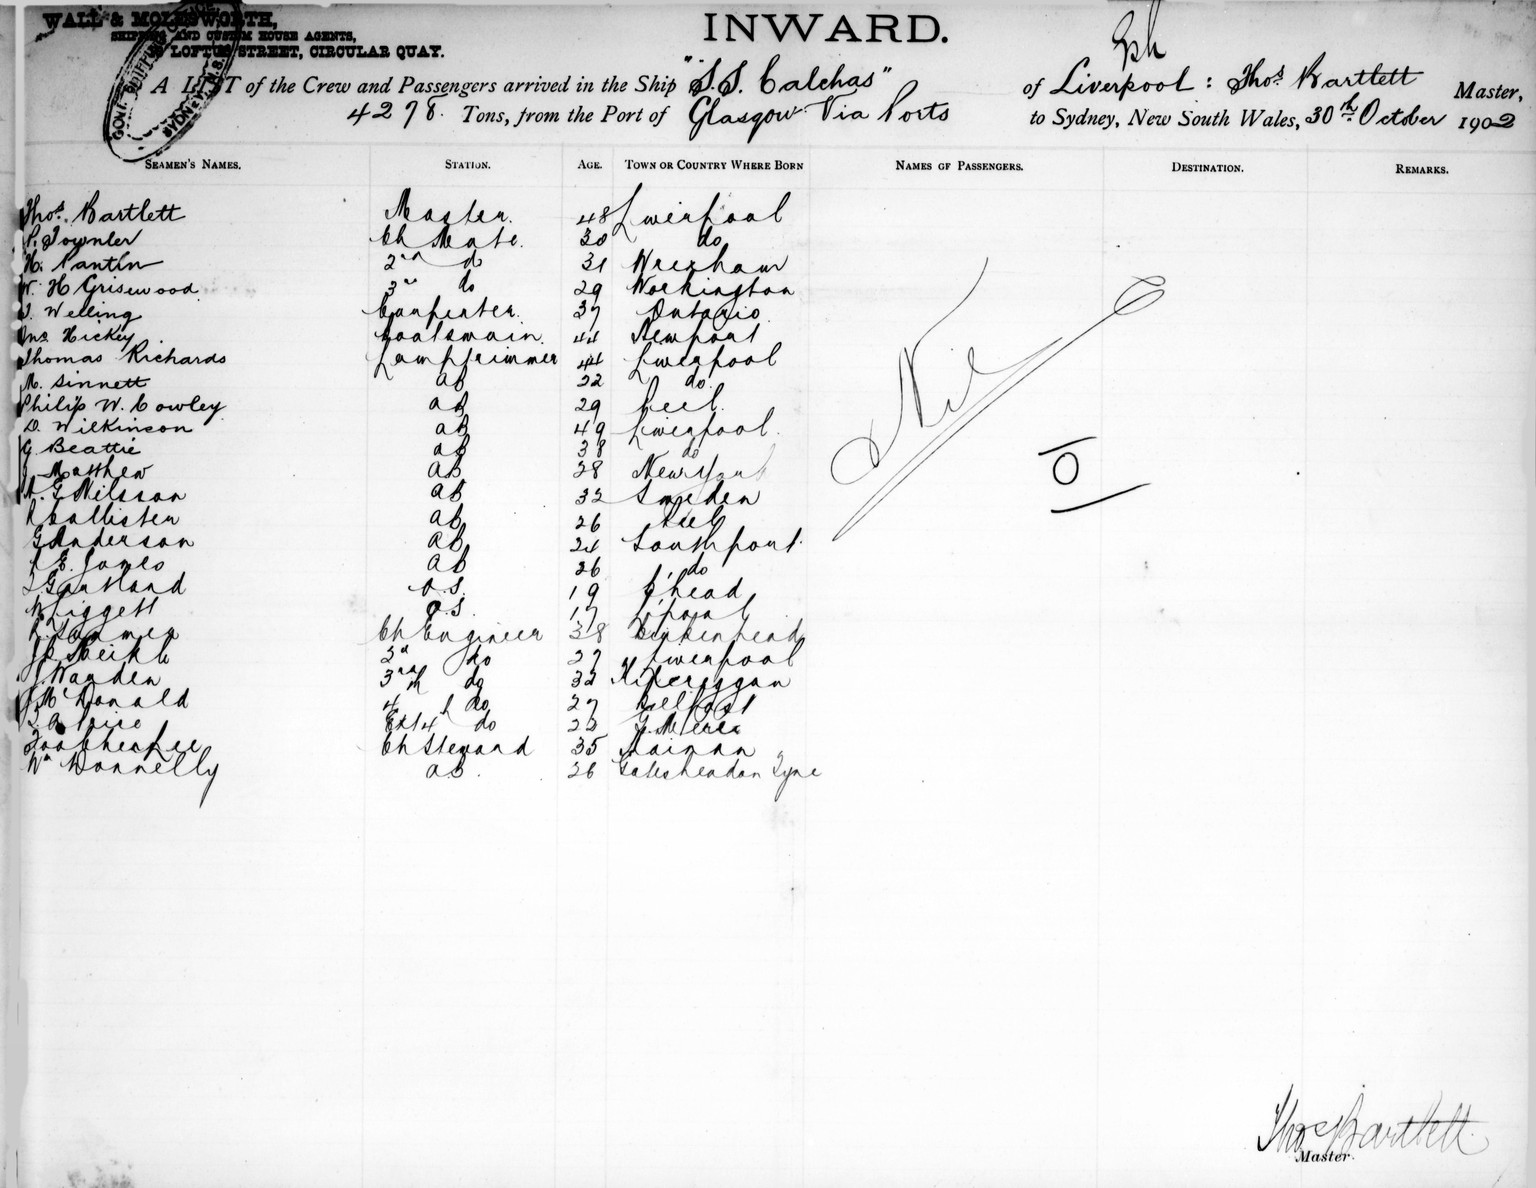 WALL & MOLESWORTH,
SHIPPING AND CUSTOM HOUSE AGENTS,
LOFTUS STREET, CIRCULAR QUAY.
INWARD.
A LIST of the Crew and Passengers arrived in the Ship "S.S. Calchas" of Liverpool: Thos. Bartlett Master,
4278. Tons, from the Port of Glasgow Via Ports to Sydney, New South Wales, 30th October 1902
SEAMEN'S NAMES. STATION. AGE. TOWN OR COUNTRY WHERE BORN NAMES OF PASSENGERS. DESTINATION. REMARKS.
Thos. Bartlett Master. 48 Liverpool
Ch Mate. 30 do
H. Pantin 2nd do 31 Wrexham
W. H Grisewood 3rd do 29 Workington
Welling Carpenter. 37 Ontario.
Jno Hickey Boatswain. 44 Newport
Thomas Richards Lamptrimmer 44 Liverpool
M. Sinnett AB 22 do.
Philip W. Cowley AB 29 Peel.
D. Wilkinson AB 49 Liverpool.
G. Beattie AB 38 do
Matthew AB 28 New York
Nilsson AB 32 Sweden
Callister AB 26 Peel
G Anderson AB 24 Southport.
E. Jones AB 26 do
Gartland O.S. 19 B'head
Liggett O.S. 17 L'pool
Ch Engineer 38 Birkenhead
2nd do 27 Liverpool
Warden 3rd do 32
McDonald 4th do 27 Belfast
Price Ext 4th do 22
Ch Steward 35 Hainan
Wm Donnelly AB. 26 Gateshead on Tyne
Nil
Thos Bartlett
Master.